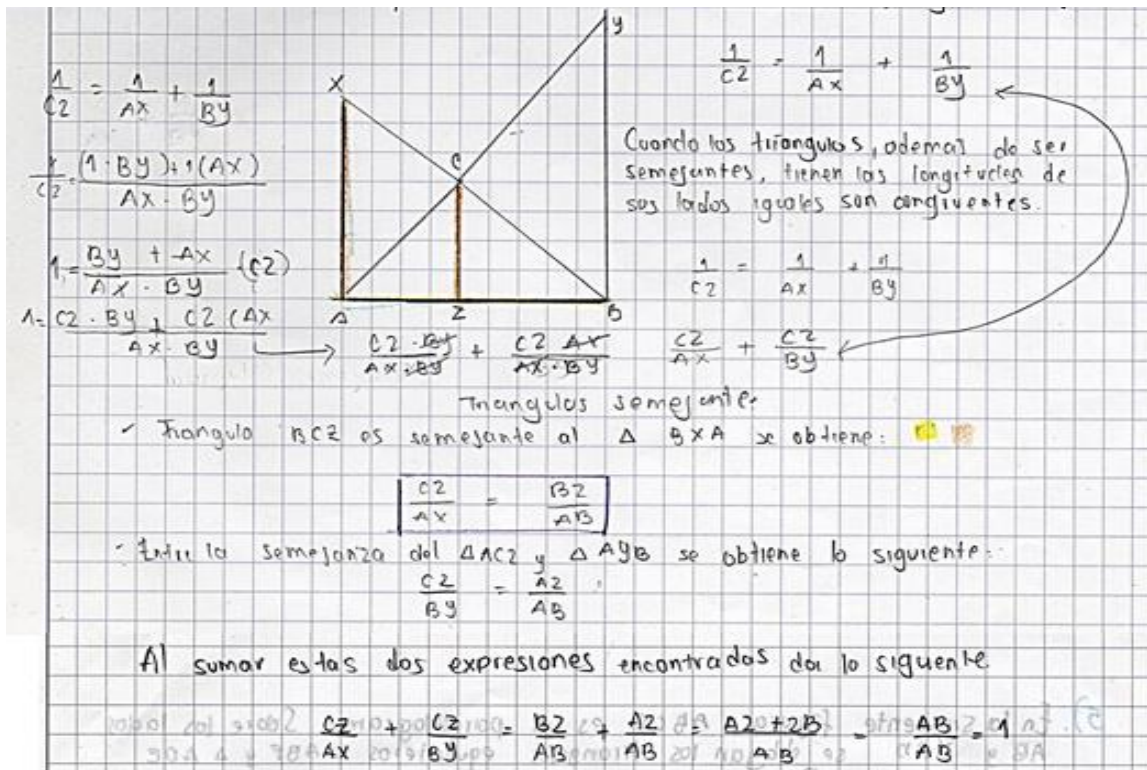 1/CZ = 1/AX + 1/BY
1/CZ = (1·BY)+1(AX) / AX·BY
1 = BY + AX / AX·BY (CZ)
1 = CZ·BY + CZ(AX / AX·BY
X
Y
C
A
Z
B
1/CZ = 1/AX + 1/BY
Cuando los triangulos, ademas de ser
semejantes, tienen las longitudes de
sus lados iguales son congruentes.
1/CZ = 1/AX + 1/BY
CZ·BY / AX·BY + CZ AX / AX·BY
CZ/AX + CZ/BY
Triangulos semejante.
- Triangulo BCZ es semejante al Δ BXA se obtiene:
CZ/AX = BZ/AB
· Entre la semejanza del ΔACZ y ΔAYB se obtiene lo siguiente:
CZ/BY = AZ/AB
Al sumar estas dos expresiones encontradas da lo siguente
CZ/AX + CZ/BY = BZ/AB + AZ/AB = AZ+ZB/AB = AB/AB = 1